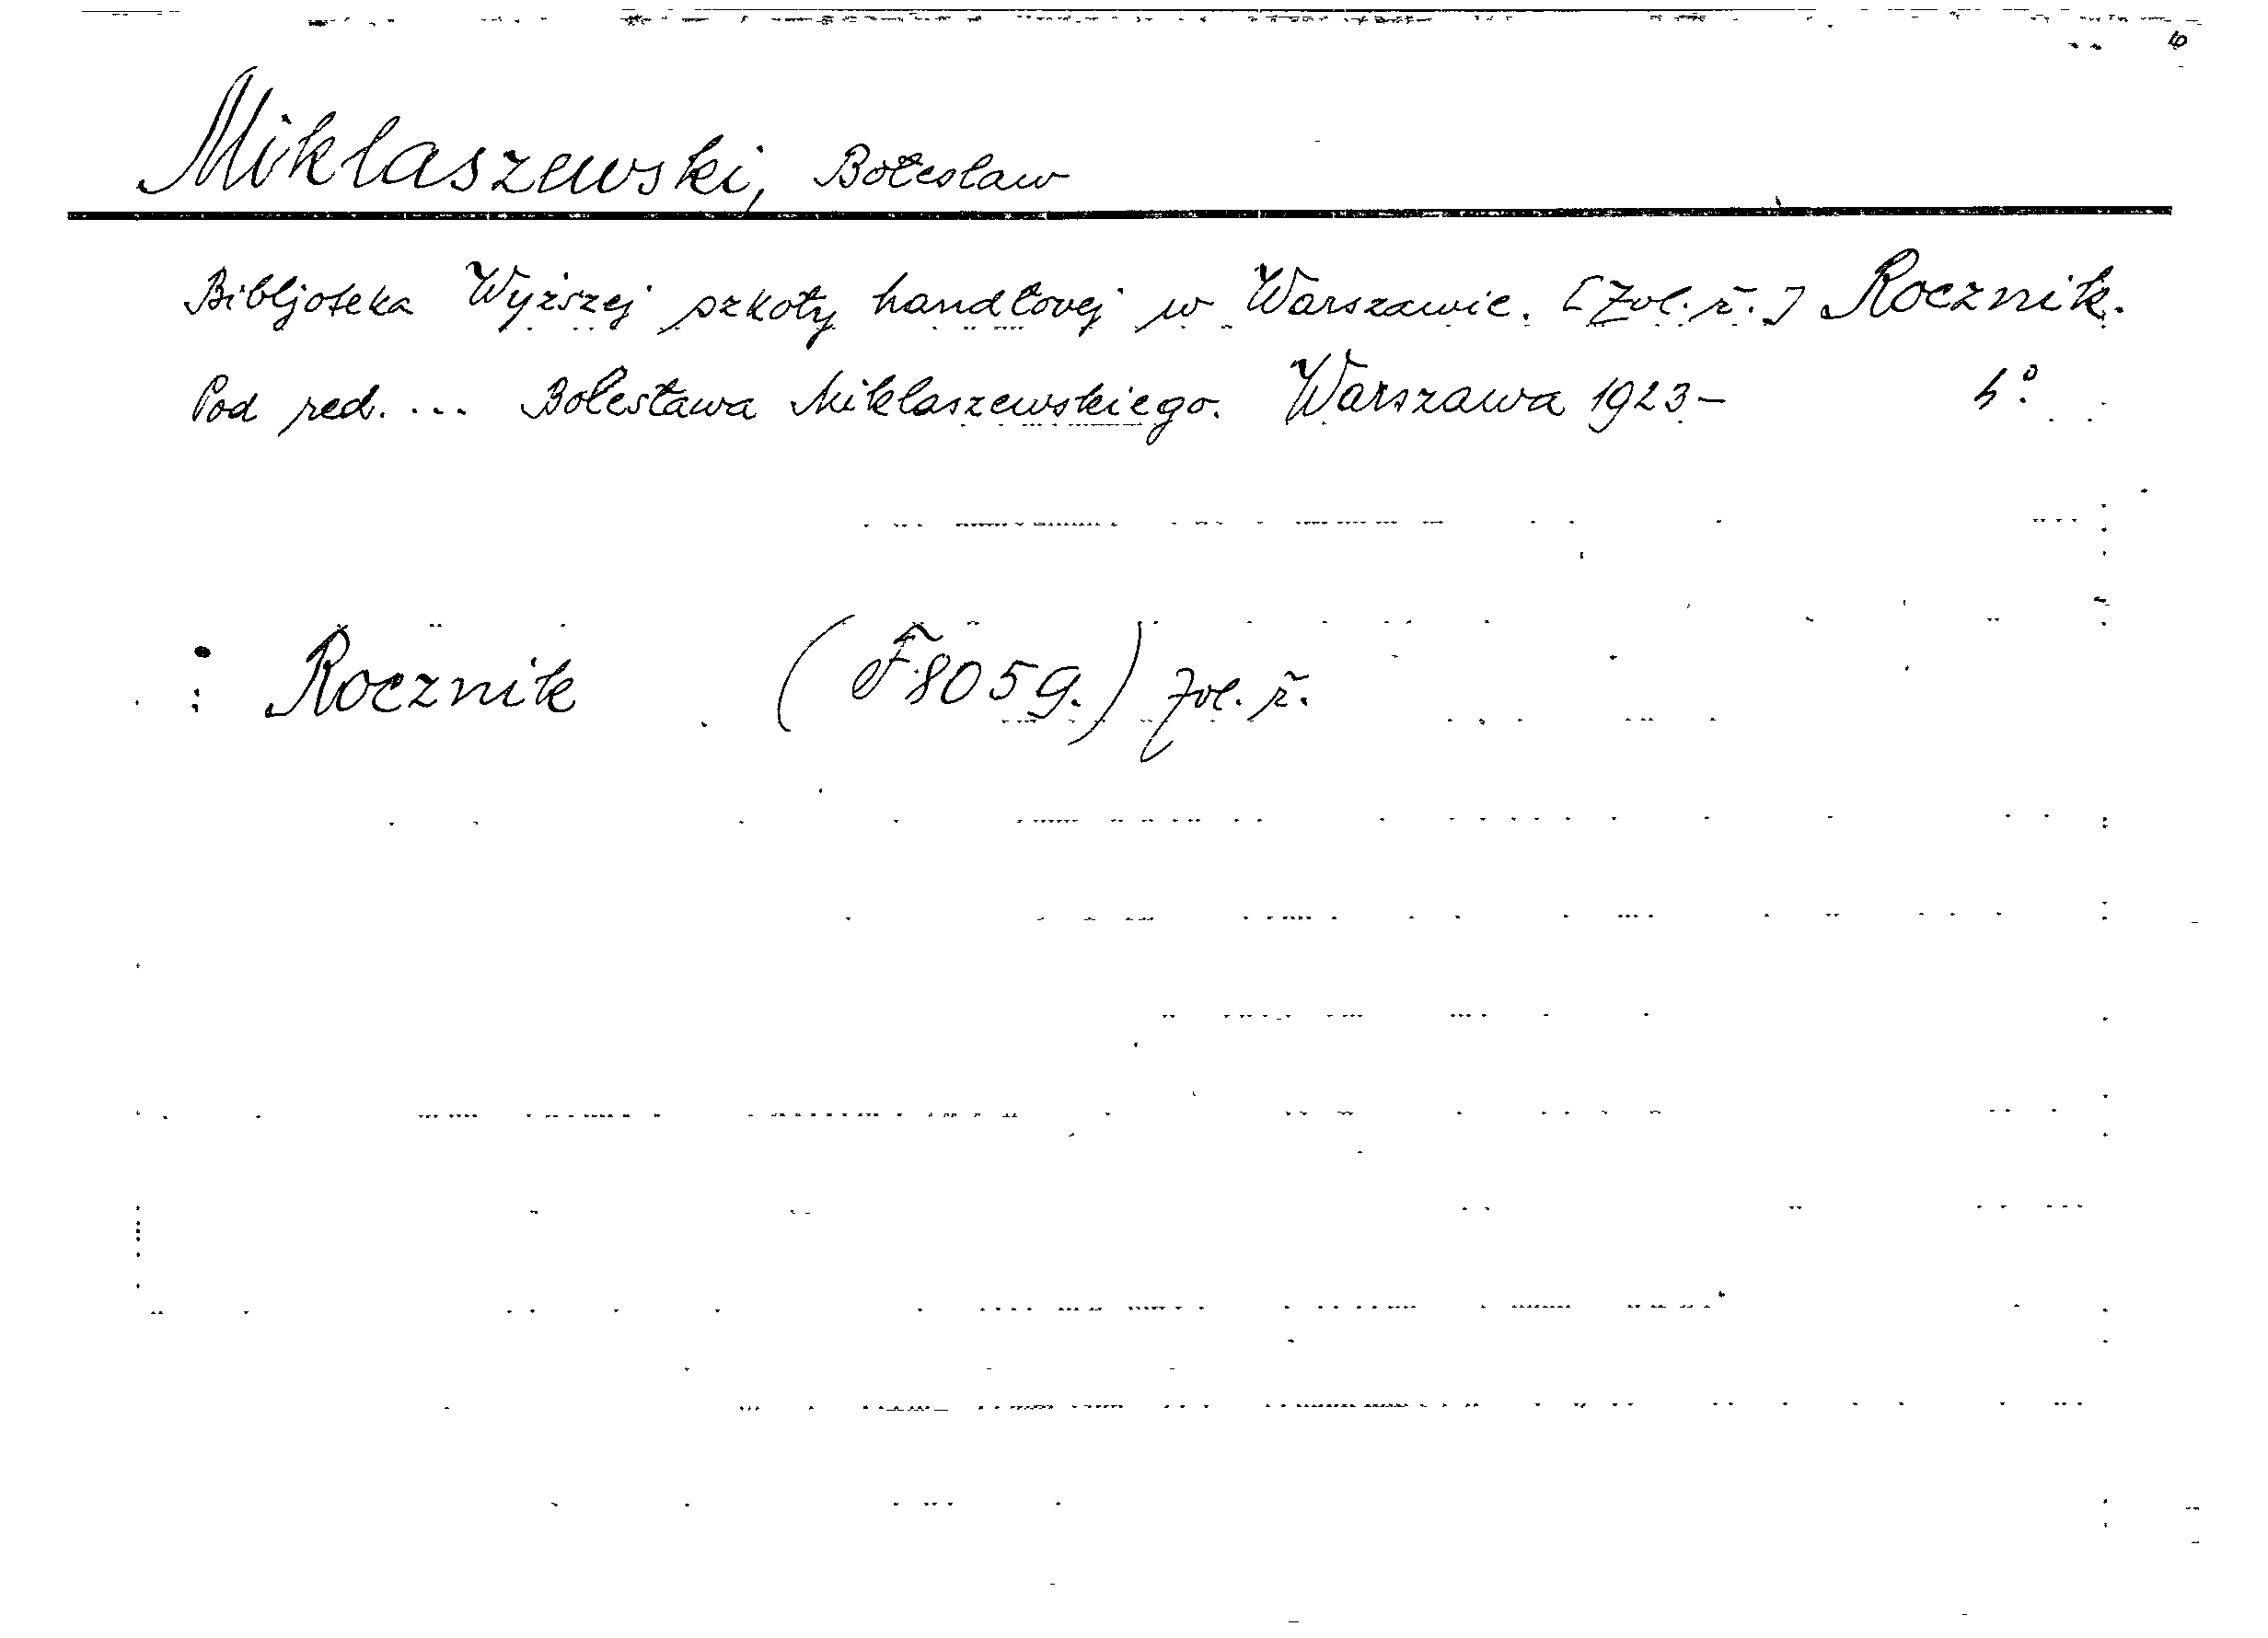 Miklaszewski, Bołeslaw
Bibljoteka Wyższej szkoły handłovej w Warszawie. [Zvl. ř.] Rocznik.
Pod red. ... Bolesława Miklaszewskiego. Warszawa 1923- 4°.
: Rocznik (F 8059.) zvl. ř.